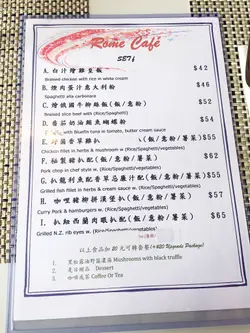 Rome Café
SETf
A. 白汁燴雞皇飯 $42
Braised chicken with rice in white cream
B. 煙肉蛋汁意大利粉 $46
Spaghetti alla carbonara
C. 燴俄國牛柳絲飯(飯/意粉) $52
Braised slice beef with (Rice/Spaghetti)
D. 香茄奶油鮪魚蝴蝶粉 $54
with Bluefin tuna in tomato, butter cream sauce
香草雞扒 (飯/意粉/薯菜) $55
Chicken fillet in herbs & mushroom w (Rice/Spaghetti/vegetables)
F. 秘製豬扒配(飯/意粉/薯菜) $62
Pork chop in chef style w. (Rice/Spaghetti/vegetables)
G. 扒龍利魚配香草忌廉汁配(飯/意粉/薯菜) $55
Grilled fish fillet in herbs & cream sauce w. (Rice/Spaghetti/vegetables)
H. 咖哩豬柳拼漢堡扒 (飯/意粉/薯菜) $61
Curry Pork & hamburgers w. (Rice/Spaghetti/vegetables)
I. 扒紐西蘭肉眼扒配(飯/意粉/薯菜) $65
Grilled N.Z. rib eyes w. (Rice/Spaghetti/vegetables)
以上食品加 20 元可轉套餐(+$20 Upgrade Package)
1. 黑松露油野菌濃湯 Mushrooms with black truffle
2. 是日甜品 Dessert
3. 咖啡或茶 Coffee Or Tea